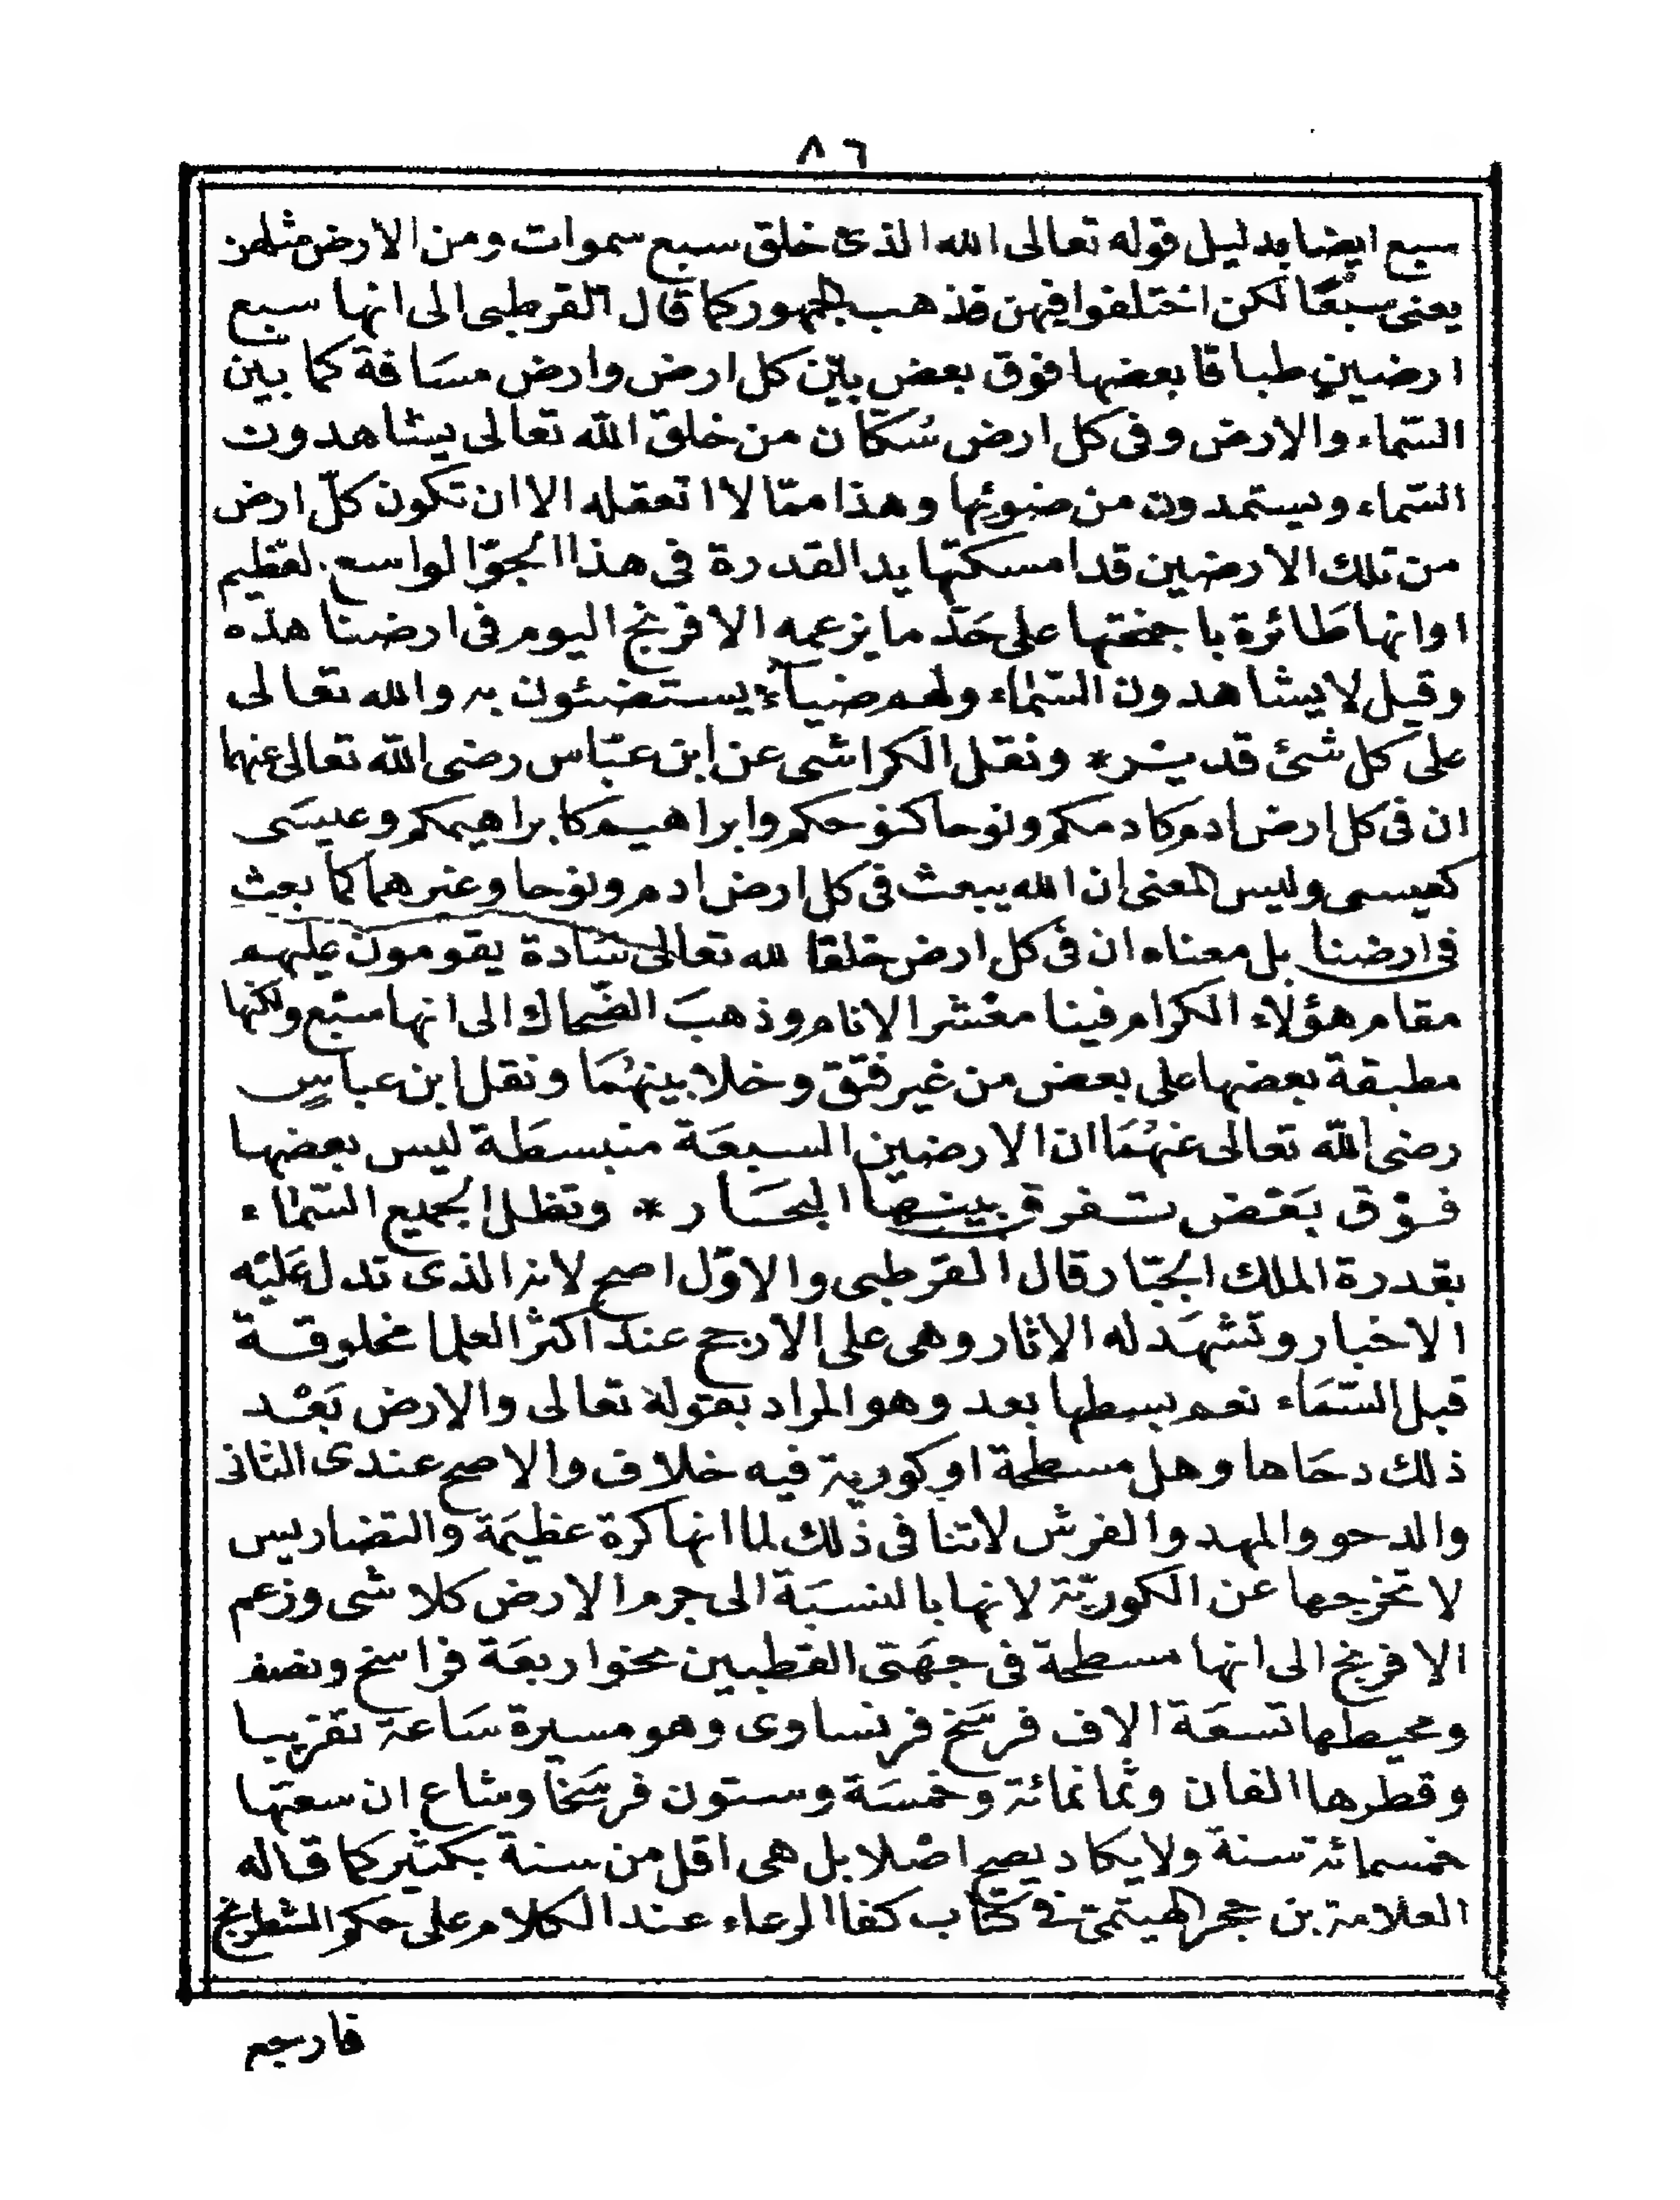 ٨٦
سبع ايضا بدليل قوله تعالى الله الذى خلق سبع سموات ومن الارض مثلهن
يعنى سبعًا لكن اختلفوا فيهن فذهب الجمهور كما قال القرطبى الى انها سبع
ارضين طباقا بعضها فوق بعض بين كل ارض وارض مسَافة كما بين
السّماء والارض وفى كل ارض سُكّان من خلق الله تعالى يشاهدون
السّماء ويستمدون من ضوئها وهذا ممّا لا اتعقله الا ان تكون كلّ ارض
من تلك الارضين قد امسكتها يد القدرة فى هذا الجوّ الواسع لعَظيم
او انها طَائرة باجنحتها على حَدّ ما يزعمه الافرنج اليوم فى ارضنا هذه
وقيل لا يشاهدون السّماء ولهم ضياءٌ يستضئون به والله تعالى
على كل شئ قديْر * ونقل الكراشى عن ابن عبّاس رضى الله تعالى عنهما
ان فى كل ارض ادم كادمكم ونوحا كنوحكم وابراهيم كابراهيمكم وعيسَى
كعيسى وليس المعنى ان الله يبعث فى كل ارض ادم ونوحا وغيرهما كما بعث
فى ارضنا بل معناه ان فى كل ارض خلقا لله تعالى سَادة يقومون عليهم
مقام هؤلاء الكرام فينا معْشر الانام وذهبَ الضّحاك الى انها سبْع ولكنها
مطبقة بعضها على بعض من غير فتق وخلا بينهُمَا ونقل ابن عباسٍ
رضى الله تعالى عنهُمَا ان الارضين السبعَة منبسطَة ليس بعضها
فوْق بَعْض تفرق بينها البحَار * وتظل الجميع السّماء
بقدرة الملك الجبّار قال القرطبى والاوّل اصح لانه الذى تدل عَليْه
الاخبار وتشهَد له الاثار وهى على الارجح عند اكثر العلما مخلوقة
قبل السّمَاء نعم بسطها بعد وهو المراد بقوله تعالى والارض بَعْد
ذلك دحَاها وهل مسطحة او كورية فيه خلاف والاصح عندى الثانى
والدحو والمهد والفرش لاتنا فى ذلك لما انها كرة عظيمَة والتضاريس
لا تخرجها عن الكوريّة لانها بالنسبَة الى جرم الارض كلا شى وزعم
الافرنج الى انها مسطحة فى جهَتى القطبين نحو اربعَة فراسخ ونصف
ومحيطها تسعَة الاف فرسَخ فرنساوى وهو مسيرة سَاعة تقريبا
وقطرها الفان وثمانمائة وخمسَة وستون فرسَخا وشاع ان سعتها
خمسمائة سنة ولا يكاد يصح اصْلا بل هى اقل من سنة بكثير كما قاله
العلامة بن حجر الهيتمى فى كتاب كفا الرعاء عند الكلام على حكم الشطرنج
فارجع